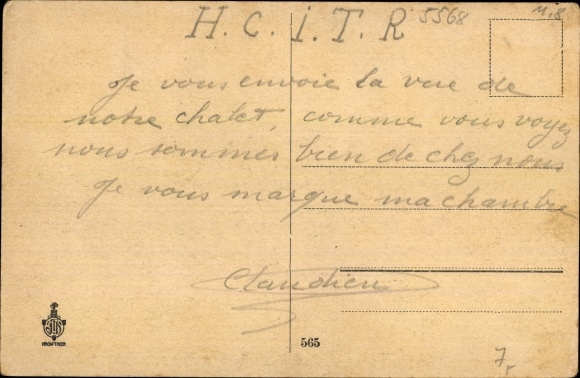 H. C. I. T. R 5568
Je vous envoie la vue de
notre chalet, comme vous voyez
nous sommes bien de chez nous
Je vous marque ma chambre
Claudien
565
7,